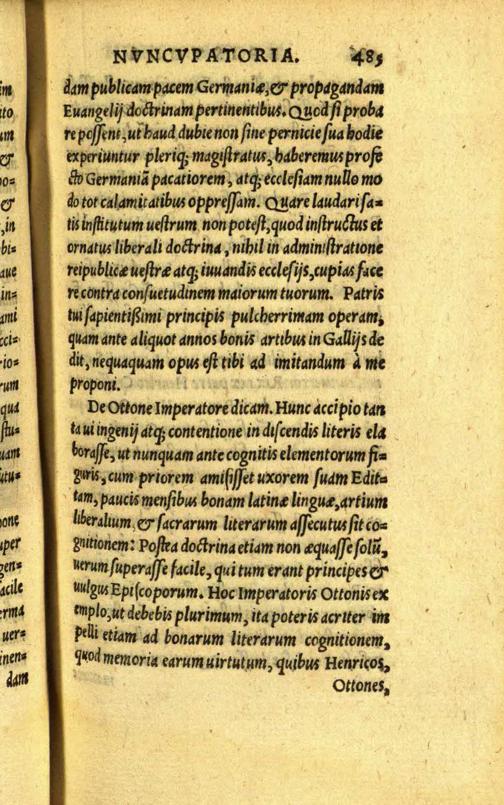 NVNCVPATORIA. 485
dam publicam pacem Germaniæ,& propagandam
Euangelij doctrinam pertinentibus. Quod si proba
re possent, ut haud dubie non sine pernicie sua hodie
experiuntur pleriq; magistratus, haberemus profe
cto Germaniã pacatiorem, atq; ecclesiam nullo mo
do tot calamitatibus oppressam. Quare laudari sa=
tis institutum uestrum non potest, quod instructus et
ornatus liberali doctrina, nihil in administratione
reipublicæ uestræ atq; iuuandis ecclesijs, cupias face
re contra consuetudinem maiorum tuorum. Patris
tui sapientißimi principis pulcherrimam operam,
quam ante aliquot annos bonis artibus in Gallijs de
dit, nequaquam opus est tibi ad imitandum à me
proponi.
De Ottone Imperatore dicam. Hunc accipio tan
ta ui ingenij atq; contentione in discendis literis ela
borasse, ut nunquam ante cognitis elementorum fi=
guris, cum priorem amisisset uxorem suam Edit=
tam, paucis mensibus bonam latinæ linguæ, artium
liberalium & sacrarum literarum assecutus sit co=
gnitionem: Postea doctrina etiam non æquasse solũ,
uerum superasse facile, qui tum erant principes &
uulgus Episcoporum. Hoc Imperatoris Ottonis ex
emplo, ut debebis plurimum, ita poteris acriter im
pelli etiam ad bonarum literarum cognitionem,
quod memoria earum uirtutum, quibus Henricos,
Ottones,
dam